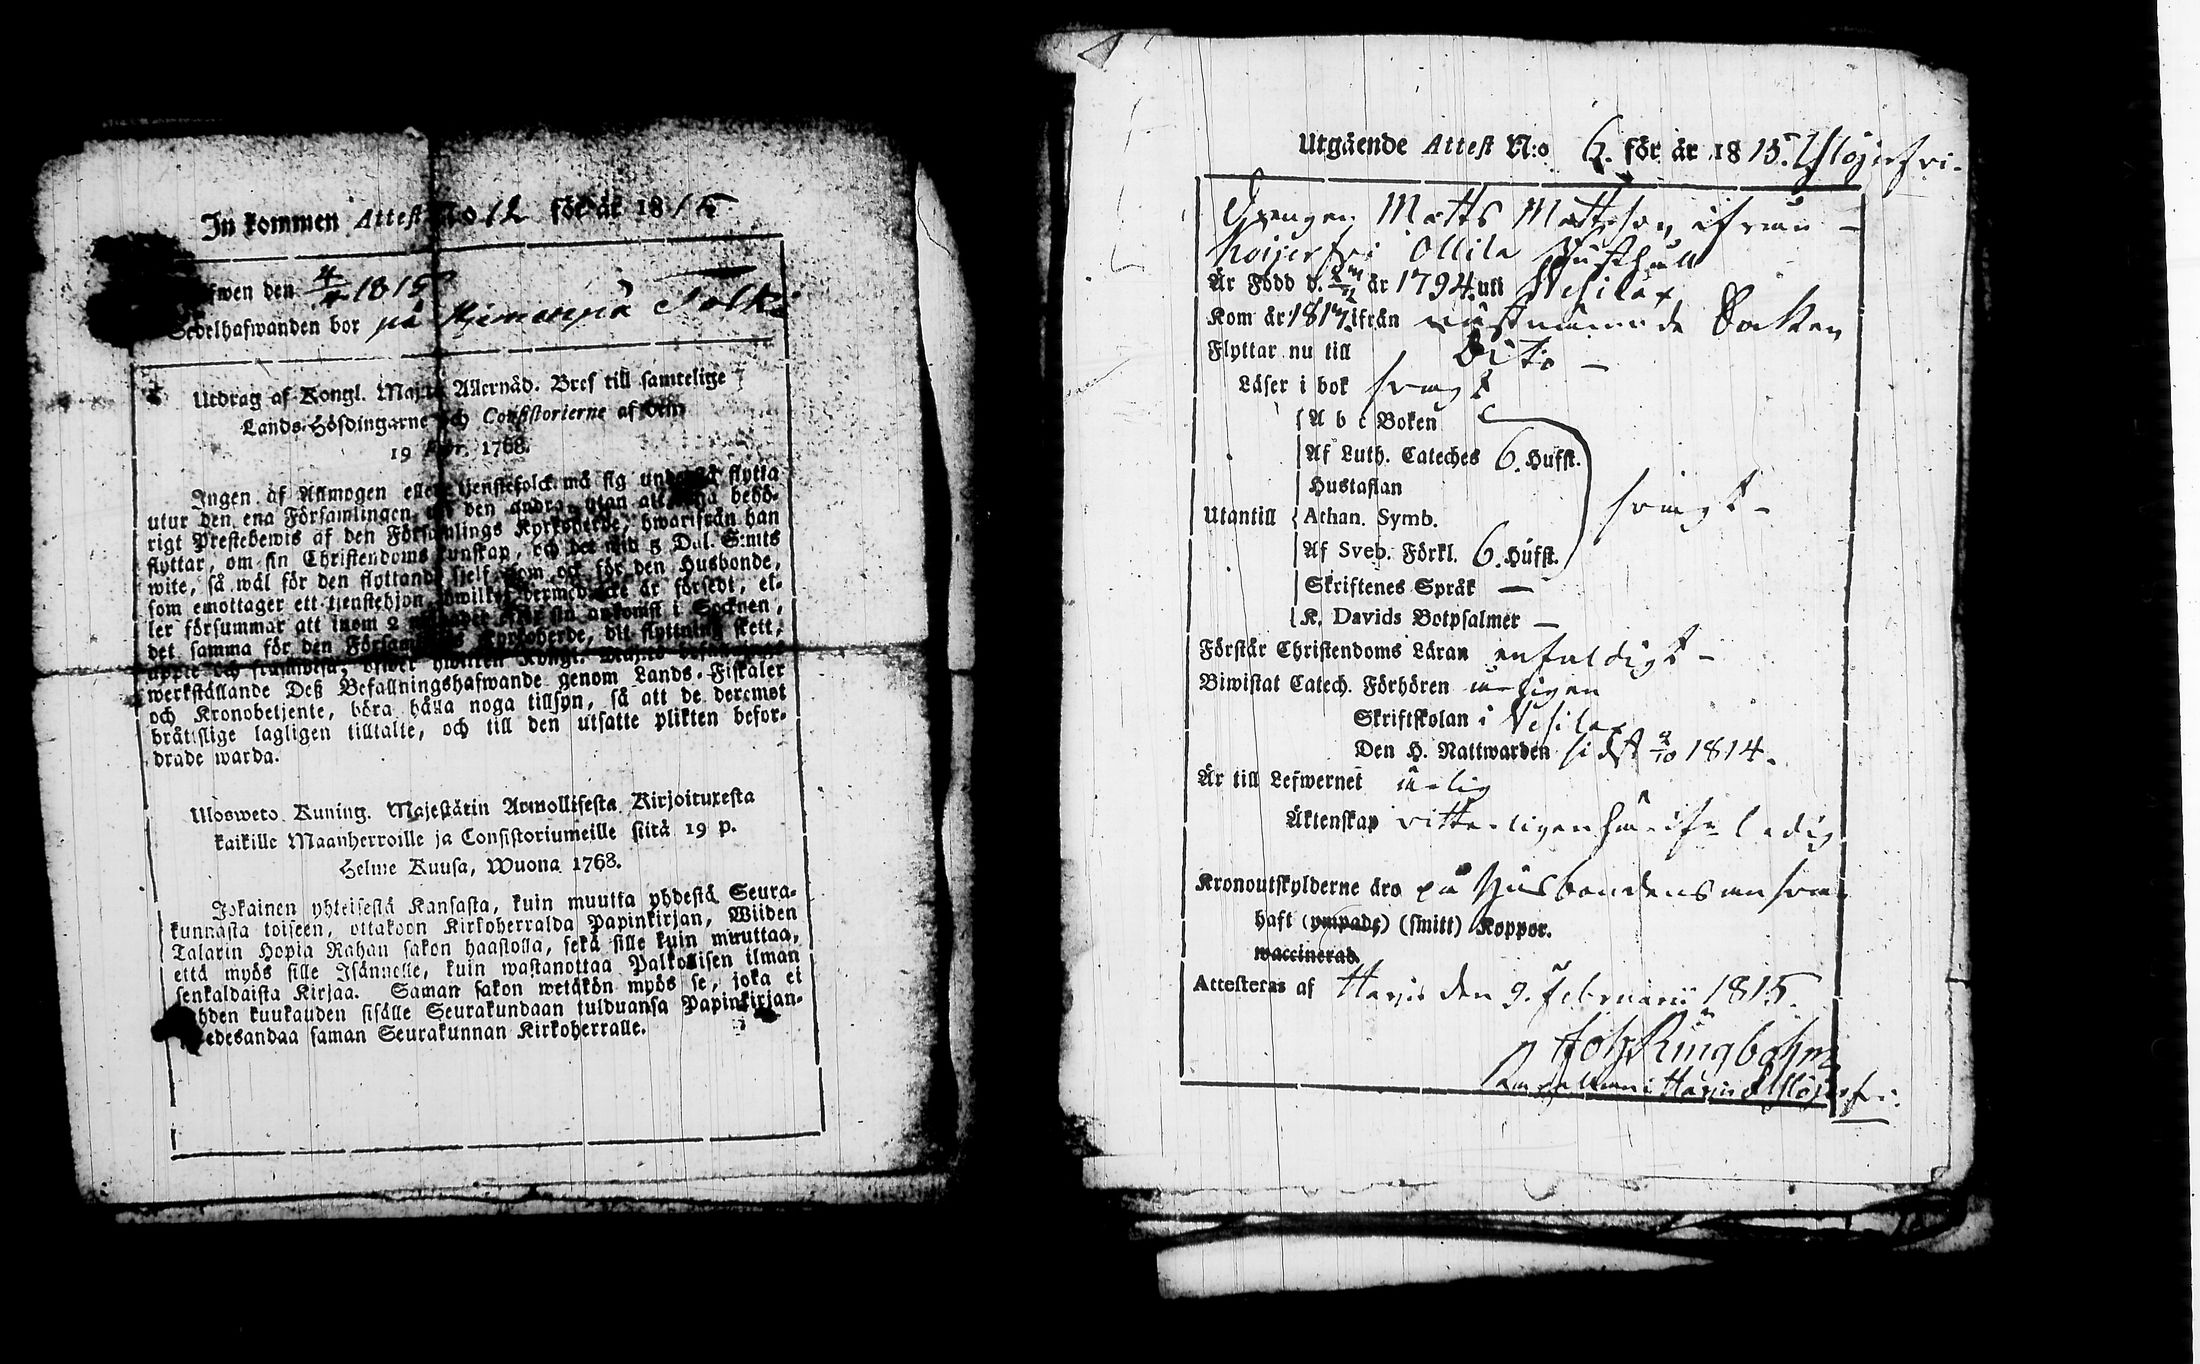 In kommen Attest No 12 för år 1815
fwen den 4/4 1815
Sedelhafwanden bor på Tolki
Utdrag af Kongl. Majts Allernåd. Bref till samtelige
Lands-Höfdingarne och Consistorierne af den
19 1768.
Ingen af Allmogen eller tjenstefolck må sig flytta
utur den ena Församlingen den andra, utan att behö-
rigt Prestebewis af den Församlings Kyrkoherde, hwarifrån han
flyttar, om sin Christendoms kunskap, och det wid 5 Dal. S:mts
wite, så wäl för den flyttande sjelf som ock för den Husbonde,
som emottager ett tjenstehjon hwilket dermed icke är försedt, el-
ler försummar att inom 2 efter sin ankomst i Socknen,
det samma för den Kyrkoherde, dit flyttning skett,
uppte och framwisa; öfwer hwilken Kongl. Majts
werkställande Deß Befallningshafwande genom Lands-Fiskaler
och Kronobetjente, böra hålla noga tillsyn, så att de deremot
bråttslige lagligen tilltalte, och till den utsatte plikten befor-
drade warda.
Ulosweto Kuning. Majestätin Armollisesta Kirjoituxesta
kaikille Maanherroille ja Consistoriumeille siitä 19 p.
Helme Kuusa, Wuona 1768.
Jokainen yhteisestä Kansasta, kuin muutta yhdestä Seura-
kunnasta toiseen, ottakoon Kirkoherralda Papinkirjan, Wiiden
Talarin Hopia Rahan sakon haastolla, sekä sille kuin muuttaa,
että myös sille Isännelle, kuin wastanottaa Palkolisen ilman
senkaldaista Kirjaa. Saman sakon wetäkön myös se, joka ei
hden kuukauden sisälle Seurakundaan tulduansa Papinkirjan-
edesandaa saman Seurakunnan Kirkoherralle.
Utgående Attest N:o 6. för år 1815. Ylöjerfvi.
Drengen Matts Mattsson ifrån
Koijerfvi Ollila
Är Född d. år 1794. uti Vesilax
Kom år 1814 ifrån nästnämnde Socken
Flyttar nu till Dito
Läser i bok svagt
A b c Boken
Af Luth. Cateches 6. Hufst.
Hustaflan
Utantill Athan. Symb. svagt
Af Sveb. Förkl. 6. Hufst.
Skriftenes Språk —
K. Davids Botpsalmer —
Förstår Christendoms Läran enfaldigt
Biwistat Catech. Förhören årligen
Skriftskolan i Vesilax
Den H. Nattwarden sidst 1814.
Är till Lefwernet ärlig
Äktenskap ledig
Kronoutskylderne äro på Husbondens ansvar
haft (ympade) (smitt) Koppor.
waccinerad.
Attesteras af Harju den 9. Februarii 1815.
Joh. Ringbohm
Capellan i Harju & Ylöjerfvi.